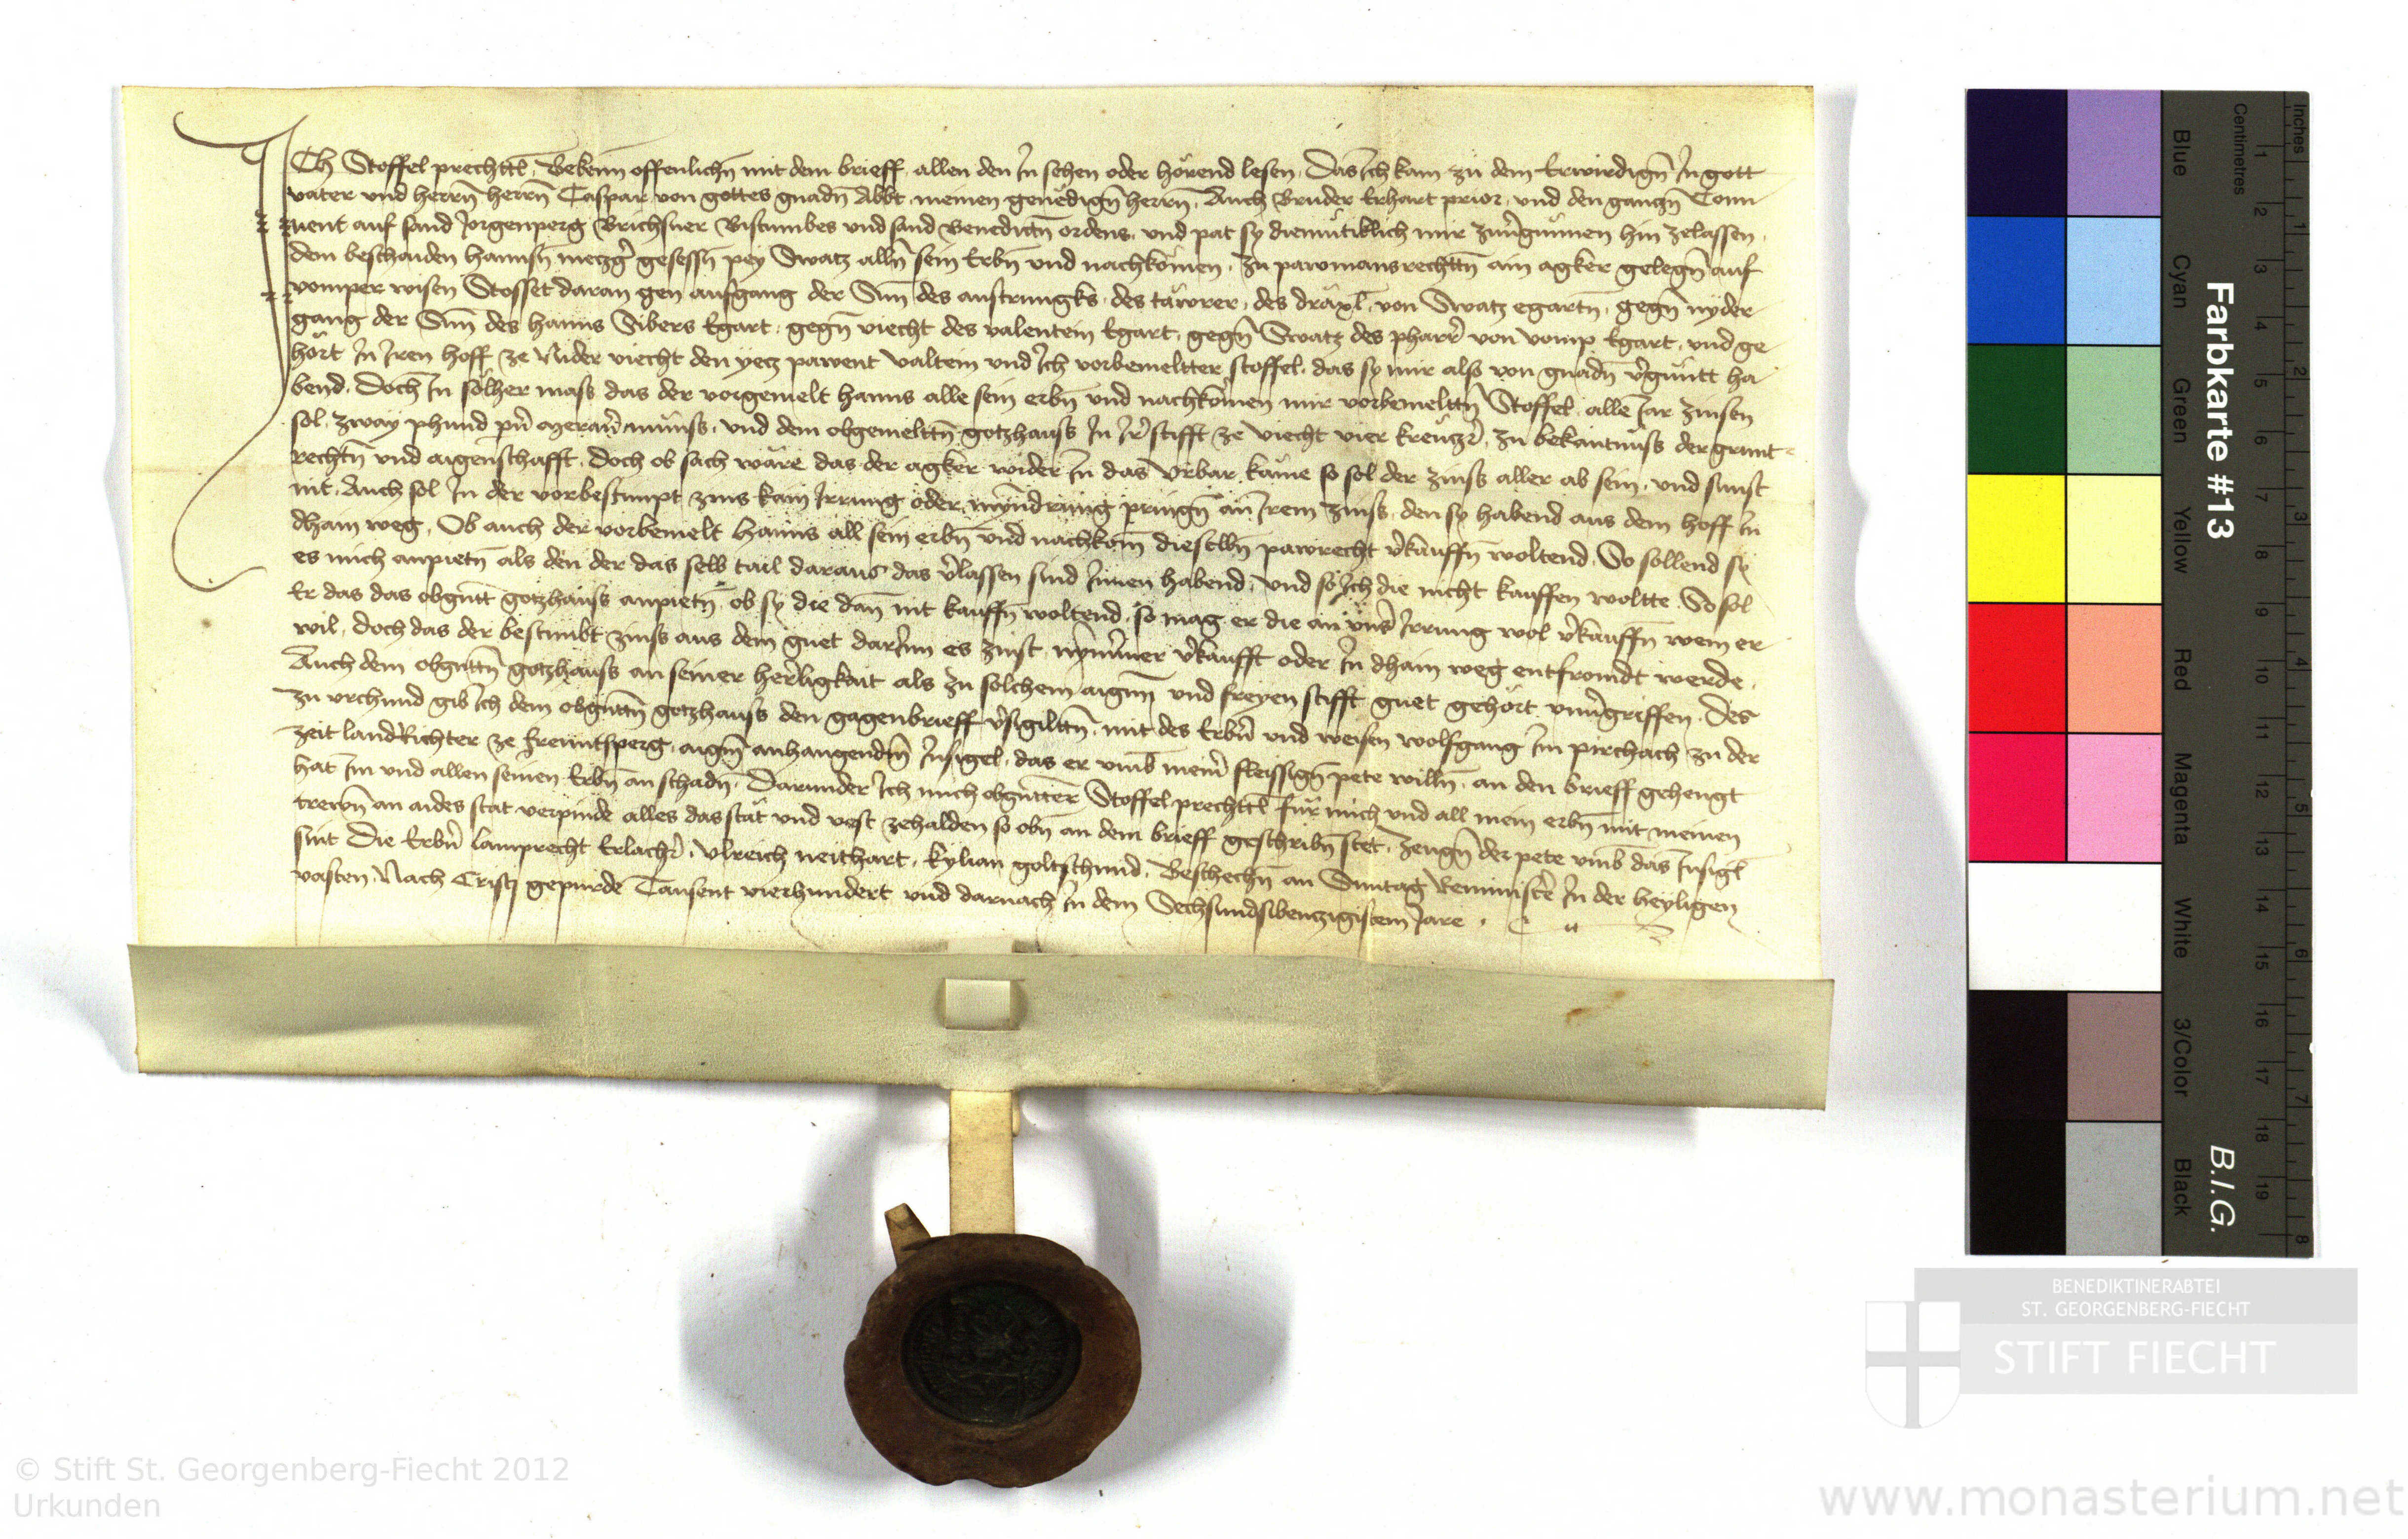 Ich Stoffel prechttl, Bekenn offenlichn̄ mit dem brieff allen den Jn sehen oder hörend lesen, Das Jch kam zu dem Erwirdign̄ Jn gott
vater und herrn̄ herrn̄ Caspar von gottes gnadn̄ Abbt meinen genëdign̄ herrn̄, Auch Bruder Erhart prior, und den ganczn̄ Conn
uent auf sand Jorgenperg Brichsner Bistumbes und sand Benedictn̄ ordens, und pat sy diemütiklich mir zuv̉gunnen hin zelassen
dem beschaiden hannsn̄ meczg̉ gesessn̄ pey Swatz alln̄ sein Erbn̄ und nachkömen, zu pawmansrechttn̄ ain agker gelegn̄ auf
vomper wisen Stosset daran gen aufgang der Sun̄ des anstrungks, des täwrer, des dräxl, von Swatz egartn̄, gegn̄ nyder
gang der Sun̄ des hanns Sibers Egart, gegn̄ viecht des valentein Egart, gegn̄ Swatz des pharr̉ von vomp Egart, und ge
hört Jn Jren hoff ze Nider viecht den yecz pawent valtein und Jch vorbemeltter stoffel, das sy mir als von gnadn̄ v̉guntt ha
bend, Doch Jn sölher mass das der vorgemelt hanns alle sein erbn̄ und nachkömen mir vorbemelttn̄ Stoffel alle Jar zinsen
sol, zway phund pn̉ meran̉ münss, und dem obgemelttn̄ gotzhauss Jn Jr̉ stifft ze viecht vier kreuczr̉, zu bekantnüss der grunt
rechtn̄ und aigenschafft, doch ob sach wäre das der agker wider Jn das vrbar käme so sol der zinss aller ab sein, und sunst
nit, Auch sol Jn der vorbestimpt zins kain Jrrung oder myndrung pringn̄ an Jrem zinss, den sy habend aus dem hoff Jn
dhain weg, Ob auch der vorbemelt hanns all sein erbn̄ und nachkom̄ dieselbn̄ pawrecht v̉kauffn̄ woltend, So sollend sy
es mich anpietn̄ als den der das selb tail daraus das v̉lassen sind Jnnen habend, und so Jch die nicht kauffen woltte So sol
Er das das obgn̄tt gotzhauss anpietn̄, ob sy die dan̄ nit kauffn̄ woltend, so mag er die an vns̉ Jrrung wol v̉kauffn̄ wem er
wil, doch das der bestimbt zinss aus dem guet darJnn es zinst nym̄mer v̉kaufft oder Jn dhain weg entfromdt werde,
Auch dem obgn̄ttn̄ gotzhauss an seiner herligkait als zu solchem aign̄ und freyen stifft guet gehört vnuv̉griffen. Des
zu vrchund gib Jch dem obgn̄ttn̄ gotzhauss den gagenbrieff v̉sigilttn̄, mit des Erbn̉ und weisen wolfgang Jm pirchach zu der
zeit landRichter ze freuntsperg, aign̄ anhangendm̄ Jnsigel, das er vmb mein̉ fleissign̄ pete willn̄, an den brieff gehengt
hat Jm und allen seinen Erbn̄ an schadn̄, Darunder Jch mich obgn̄tter Stoffel prechttl für mich und all mein erbn̄ mit meinen
trewn̄ an aides stat verpinde alles das stät und vest zehalden so obn̄ an dem brieff geschribn̄ stet, Zeugn̄ der pete vmb das Jnsigl
sint die Erbn̉ lamprecht Erlachr̉, vlreich neithart, kylian goltschmid, Beschechn̄ an Suntag Reminiscer̉ Jn der heyligen
vasten, Nach Cristj gepurde Tausent vierhundert und darnach Jn dem Sechsundsibenczigistem Jare.
Farbkarte #13
B.I.G.
Inches
Centimetres
Blue
Cyan
Green
Yellow
Red
Magenta
White
3/Color
Black
1 2 3 4 5 6 7 8 9 10 11 12 13 14 15 16 17 18 19
1 2 3 4 5 6 7 8
BENEDIKTINERABTEI
ST. GEORGENBERG-FIECHT
STIFT FIECHT
© Stift St. Georgenberg-Fiecht 2012
Urkunden
www.monasterium.net